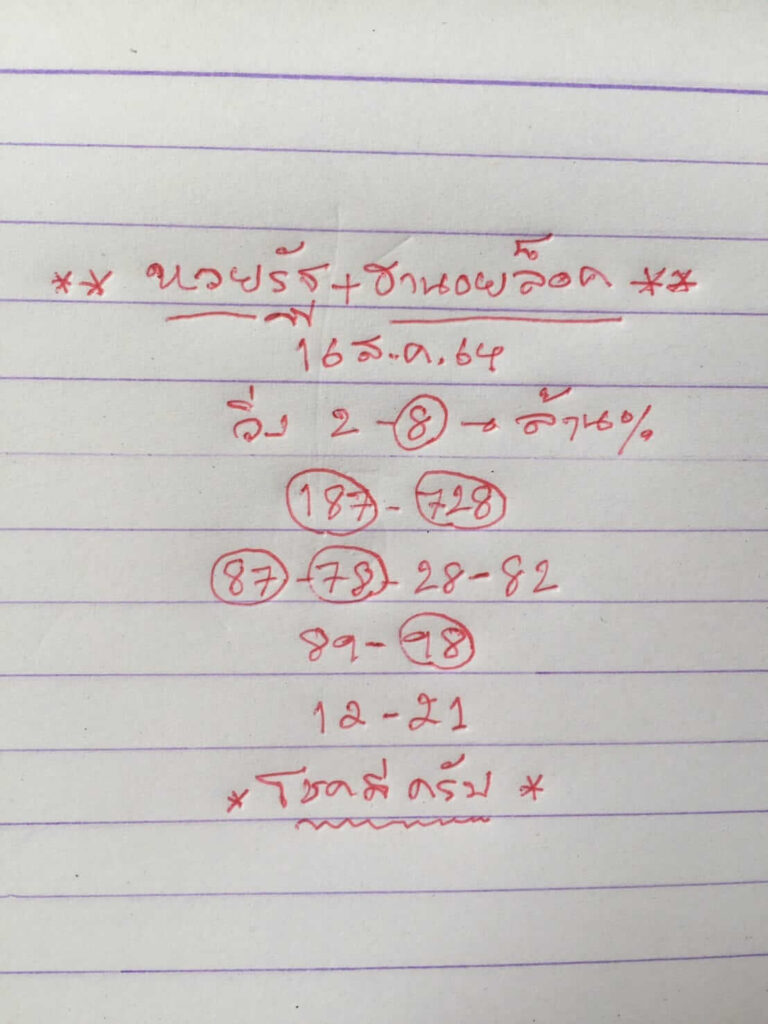 ** หวยรัฐ + ฮานอยล็อค **
16 ส.ค. 64
วิ่ง 2 - 8 → ล้าน%
187 - 728
87 - 78 - 28 - 82
89 - 98
12 - 21
* โชคดี ครับ *